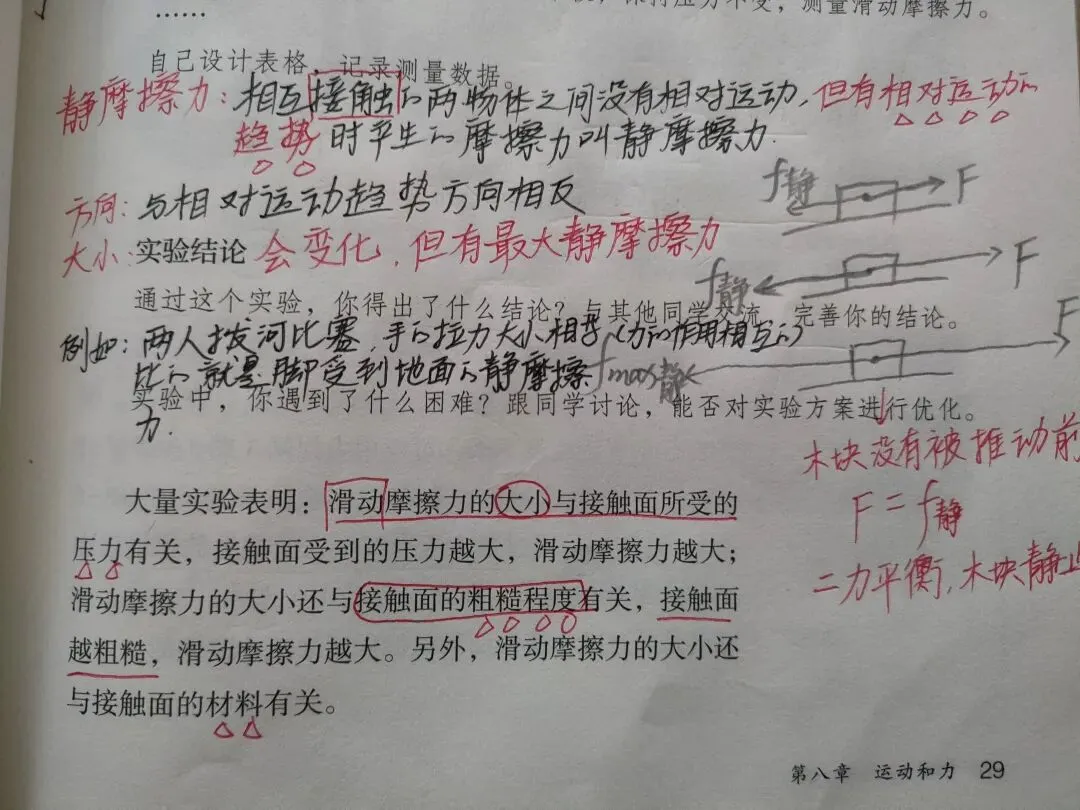 ……
保持压力不变，测量滑动摩擦力。
自己设计表格，记录测量数据。
静摩擦力：相互接触的两物体之间没有相对运动，但有相对运动的
趋势时产生的摩擦力叫静摩擦力.
方向：与相对运动趋势方向相反
f静 F
大小：实验结论 会变化，但有最大静摩擦力
f静 F
通过这个实验，你得出了什么结论？与其他同学交流，完善你的结论。
例如：两人拔河比赛，手的拉力大小相等（力的作用相互的）
F
比的就是脚受到地面的静摩擦
fmax静
实验中，你遇到了什么困难？跟同学讨论，能否对实验方案进行优化。
力.
木块没有被推动前
F=f静
二力平衡，木块静止
大量实验表明：滑动摩擦力的大小与接触面所受的
压力有关，接触面受到的压力越大，滑动摩擦力越大；
滑动摩擦力的大小还与接触面的粗糙程度有关，接触面
越粗糙，滑动摩擦力越大。另外，滑动摩擦力的大小还
与接触面的材料有关。
第八章 运动和力 29